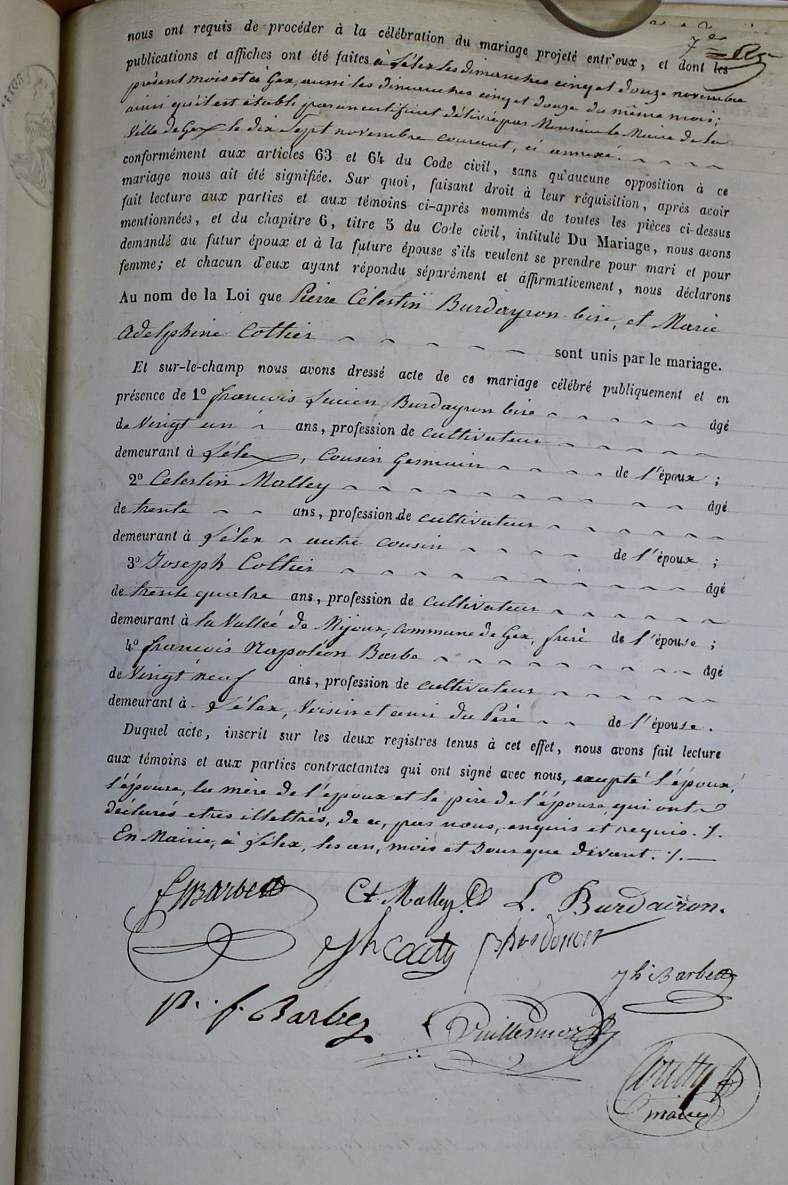 7e
nous ont requis de procéder à la célébration du mariage projeté entr'eux, et dont les
publications et affiches ont été faites à Lélex les dimanches cinq et douze novembre
présent mois et à Gex, aussi les dimanches cinq et douze du même mois;
ainsi qu'il est établi par un certificat délivré par Monsieur le Maire de la
Ville de Gex le dix sept novembre courant, ci annexé.
conformément aux articles 63 et 64 du Code civil, sans qu'aucune opposition à ce
mariage nous ait été signifiée. Sur quoi, faisant droit à leur réquisition, après avoir
fait lecture aux parties et aux témoins ci-après nommés de toutes les pièces ci-dessus
mentionnées, et du chapitre 6, titre 5 du Code civil, intitulé Du Mariage, nous avons
demandé au futur époux et à la future épouse s'ils veulent se prendre pour mari et pour
femme; et chacun d'eux ayant répondu séparément et affirmativement, nous déclarons
Au nom de la Loi que Pierre Célestin Burdayron bise, et Marie
Adelphine Cottier sont unis par le mariage.
Et sur-le-champ nous avons dressé acte de ce mariage célébré publiquement et en
présence de 1º françois Lucien Burdayron bise âgé
de Vingt un ans, profession de cultivateur
demeurant à Lélex, cousin Germain de l'époux;
2º Celestin Malley âgé
de trente ans, profession de cultivateur
demeurant à Lélex autre cousin de l'époux;
3º Joseph Cottier âgé
de trente quatre ans, profession de cultivateur
demeurant à la Vallée de Mijoux, commune de Gex, frère de l'épouse;
4º françois Napoléon Barbe âgé
de Vingt neuf ans, profession de cultivateur
demeurant à Lélex, Voisin et ami du Père de l'épouse.
Duquel acte, inscrit sur les deux registres tenus à cet effet, nous avons fait lecture
aux témoins et aux parties contractantes qui ont signé avec nous, excepté l'époux,
l'épouse, la mère de l'époux et le père de l'épouse, qui ont
déclarés etres illettrés, de ce, par nous, enquis et requis. /.
En Mairie, à Lélex, les an, mois et Jour que devant. /.
Ct Malley L. Burdairon.
jh Barbe
f. Barbe
Vuillermoz
maire